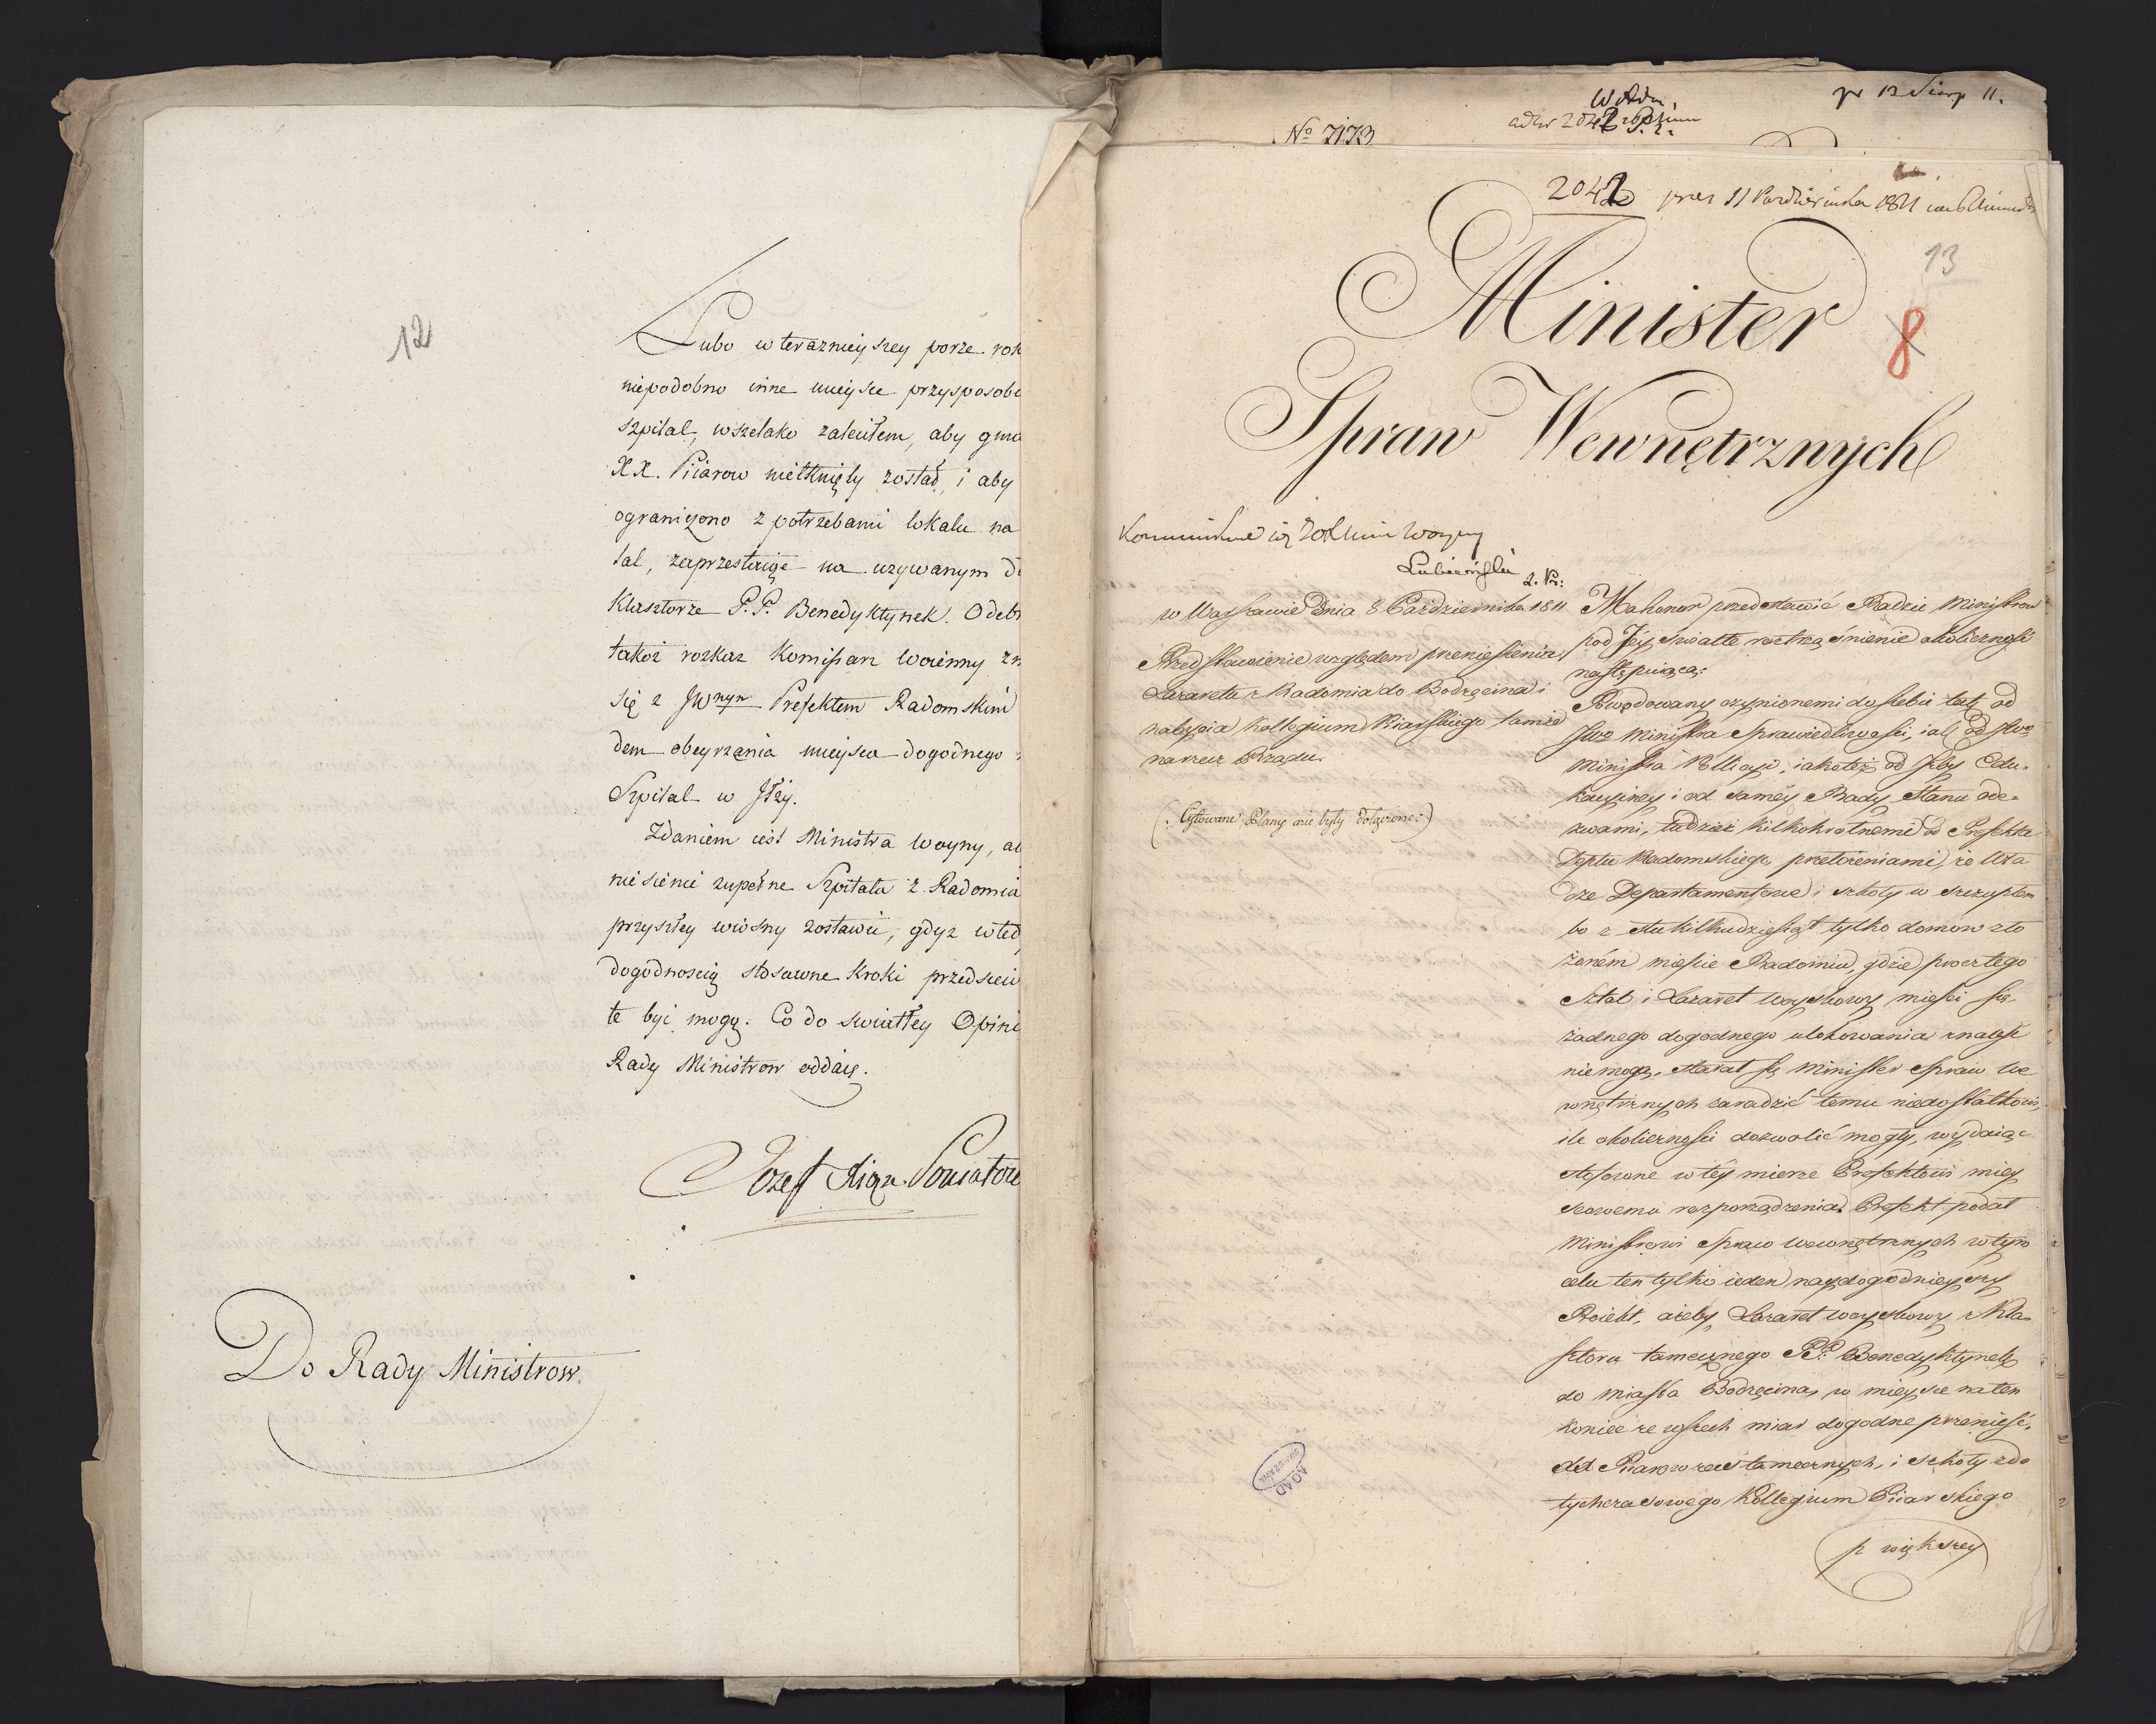 12
Lubo w teraznieyszey porze rok
niepodobno inne mieysce przysposobi
szpital, wszelako zaleciłem, aby gma
XX. Piiarow nietknięty został, i aby
ograniczono z potrzebami lokalu na
tal, zaprzestaiąc na używanym d
Klasztorze P.P. Benedyktynek. Odebr
takoż rozkaz Komissarz woienny zn
się z JWnym Prefektem Radomskim
dem obeyrzenia mieysca dogodnego
Szpital w Jłży.
Zdaniem iest Ministra woyny, ab
niesienie zupełne Szpitala z Radomia
przyszłey wiosny zostawić, gdyż wted
dogodnością stosowne Kroki przedsiew
te być mogą. Co do swiatłey Opini
Rady Ministrow oddaię.
Jozef Xiąż. Poniatow
Do Rady Ministrow.
pr 13 Sierp 11.
No 7173
2042 prez 11 Pazdziernika 1811
13
8
Minister
Spraw Wewnętrznych
Woyny
Lubieński
w Warszawie Dnia 8 Października 1811
Przedstawienie względem przeniesienia
Lazaretu z Radomia do Bodzęcina i
nabycia Kollegium Piiarskiego tamże
na rzecz Rządu.
(: Cytowane Plany nie były dołączone :)
Ma honor przedstawić Radzie Ministrow
pod Jey swiatłe roztrząśnienie okoliczność
następuiącą:
Powodowany czynionemi do siebie tak od
JWo Ministra Sprawiedliwości, iak od JWo
Ministra Policyi, iakoteż od Jzby Edu-
kacyiney i od samey Rady Stanu ode-
zwami, tudzież kilkokrotnemi od Prefekta
Deptu Radomskiego przełożeniami, że Wła
dze Departamentowe i szkoły w szczupłem
bo z stu kilkudziesiąt tylko domow zło
żoném mieście Radomiu, gdzie procz tego
Sztab i Lazaret woyskowy mieści się
żadnego dogodnego ulokowania znaleść
niemogą, starał się Minister Spraw We
wnętrznych zaradzić temu niedostatkowi,
ile okoliczności dozwolić mogły, wydaiąc
stosowne w tey mierze Prefektowi miey
scowemu rozporządzenia. Prefekt podał
Ministrowi Spraw wewnętrznych w tym
celu ten tylko ieden naydogodnieyszy
Proiekt, ażeby Lazaret woyskowy z Kla-
sztoru tamecznego PP. Benedyktynek
do miasta Bodzęcina, w mieysce na ten
koniec ze wszech miar dogodne przenieść,
Piiarow zaś tamecznych, i szkoły z do
tychczasowego Kollegium Piiarskiego
p większey
AGAD
WARSZAWA